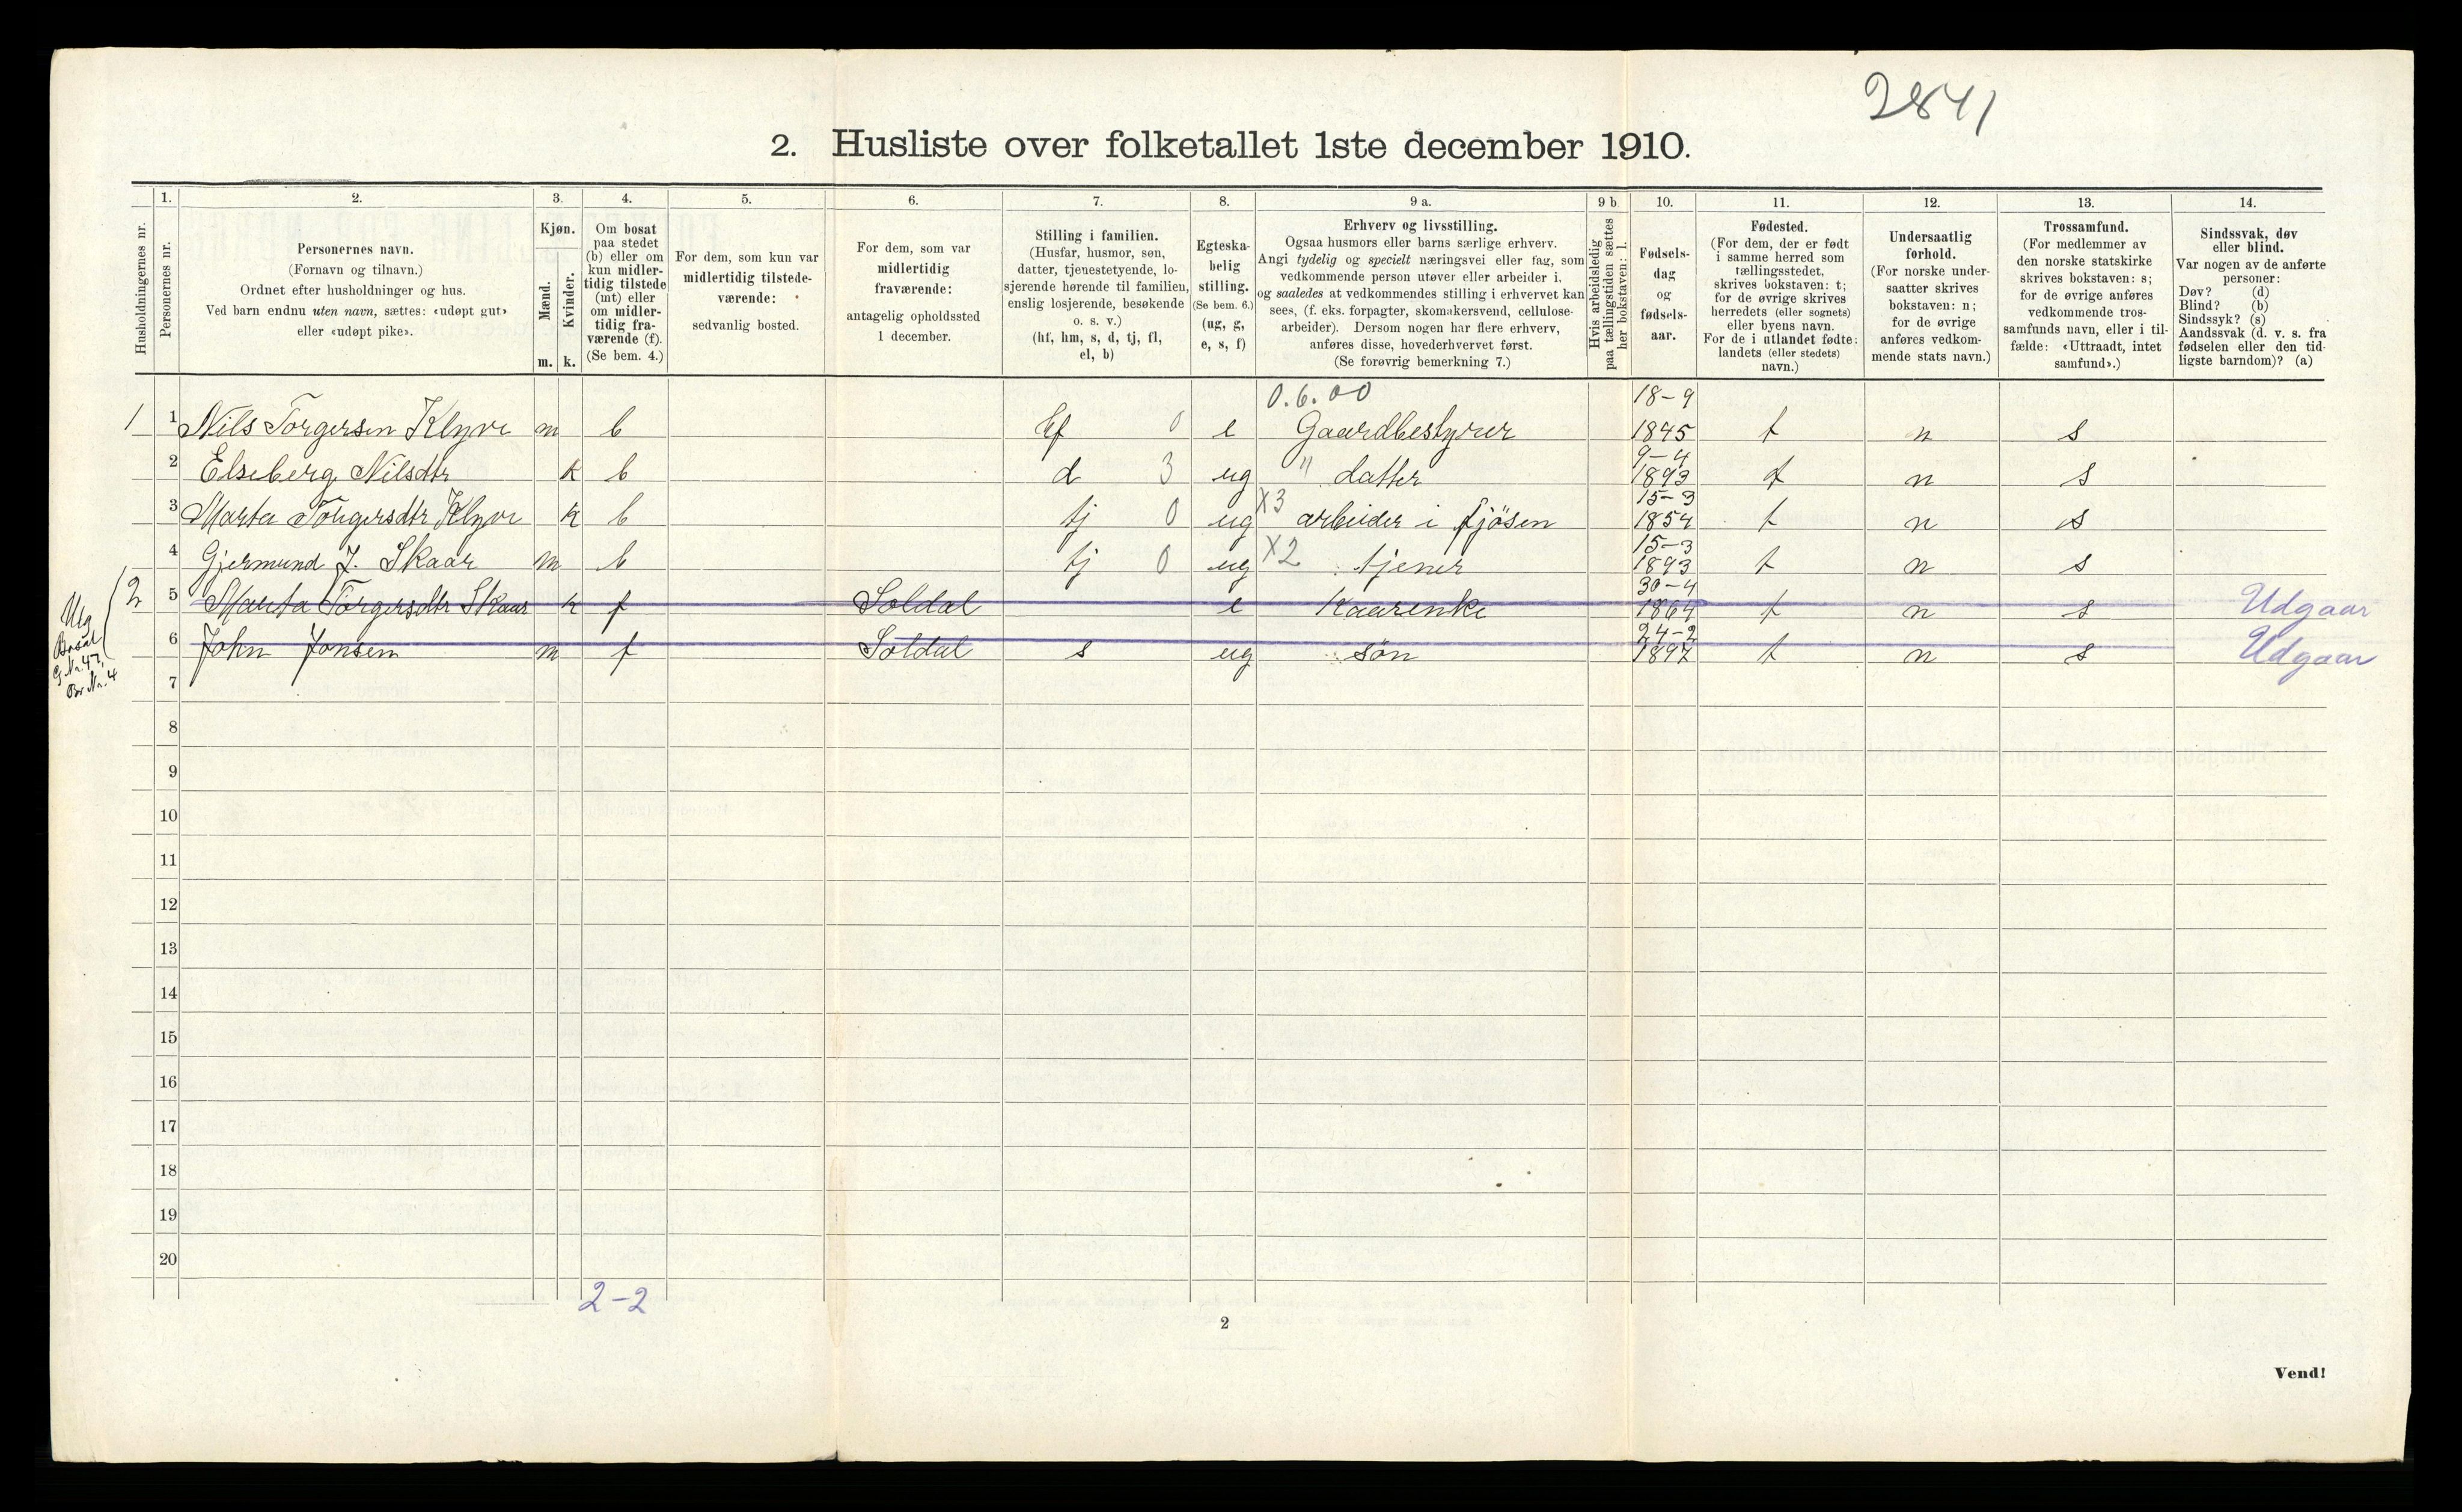 2841
2. Husliste over folketallet 1ste december 1910.
Husholdningernes nr.
1.
Personernes nr.
2.
Personernes navn.
(Fornavn og tilnavn.)
Ordnet efter husholdninger og hus.
Ved barn endnu uten navn, sættes: «udøpt gut»
eller «udøpt pike».
3.
Kjøn.
Mænd.
Kvinder.
m. k.
4.
Om bosat
paa stedet
(b) eller om
kun midler-
tidig tilstede
(mt) eller
om midler-
tidig fra-
værende (f).
(Se bem. 4.)
5.
For dem, som kun var
midlertidig tilstede-
værende:
sedvanlig bosted.
6.
For dem, som var
midlertidig
fraværende:
antagelig opholdssted
1 december.
7.
Stilling i familien.
(Husfar, husmor, søn,
datter, tjenestetyende, lo-
sjerende hørende til familien,
enslig losjerende, besøkende
o. s. v.)
(hf, hm, s, d, tj, fl,
el, b)
8.
Egteska-
belig
stilling.
(Se bem. 6.)
(ug, g,
e, s, f)
9 a.
Erhverv og livsstilling.
Ogsaa husmors eller barns særlige erhverv.
Angi tydelig og specielt næringsvei eller fag, som
vedkommende person utøver eller arbeider i,
og saaledes at vedkommendes stilling i erhvervet kan
sees, (f. eks. forpagter, skomakersvend, cellulose-
arbeider). Dersom nogen har flere erhverv,
anføres disse, hovederhvervet først.
(Se forøvrig bemerkning 7.)
9 b
Hvis arbeidsledig
paa tællingstiden sættes
her bokstaven: l.
10.
Fødsels-
dag
og
fødsels-
aar.
11.
Fødested.
(For dem, der er født
i samme herred som
tællingsstedet,
skrives bokstaven: t;
for de øvrige skrives
herredets (eller sognets)
eller byens navn.
For de i utlandet fødte:
landets (eller stedets)
navn.)
12.
Undersaatlig
forhold.
(For norske under-
saatter skrives
bokstaven: n;
for de øvrige
anføres vedkom-
mende stats navn.)
13.
Trossamfund.
(For medlemmer av
den norske statskirke
skrives bokstaven: s;
for de øvrige anføres
vedkommende tros-
samfunds navn, eller i til-
fælde: «Uttraadt, intet
samfund».)
14.
Sindssvak, døv
eller blind.
Var nogen av de anførte
personer:
Døv? (d)
Blind? (b)
Sindssyk? (s)
Aandssvak (d. v. s. fra
fødselen eller den tid-
ligste barndom)? (a)
0.6.00 18-9
1 1 Nils Torgersen Klyve m b hf 0 e Gaardbestyrer 1845 t n s
9-4
2 Elseberg Nilsdtr k b d 3 ug " datter 1893 t n s
15-3
3 Marta Torgersdtr Klyve k b tj 0 ug X3 arbeider i fjøsen 1854 t n s
15-3
4 Gjermund J. Skaar m b tj 0 ug X2 tjener 1893 t n s
30-4
2 5 Marta Torgersdtr Skaar k f Soldal e Kaarenke 1864 t n s Udgaar
24-2
6 John Jonsen m f Soldal s ug søn 1897 t n s Udgaar
G.Nr. 47,
Br.Nr. 4
7
8
9
10
11
12
13
14
15
16
17
18
19
20
2-2
2
Vend!